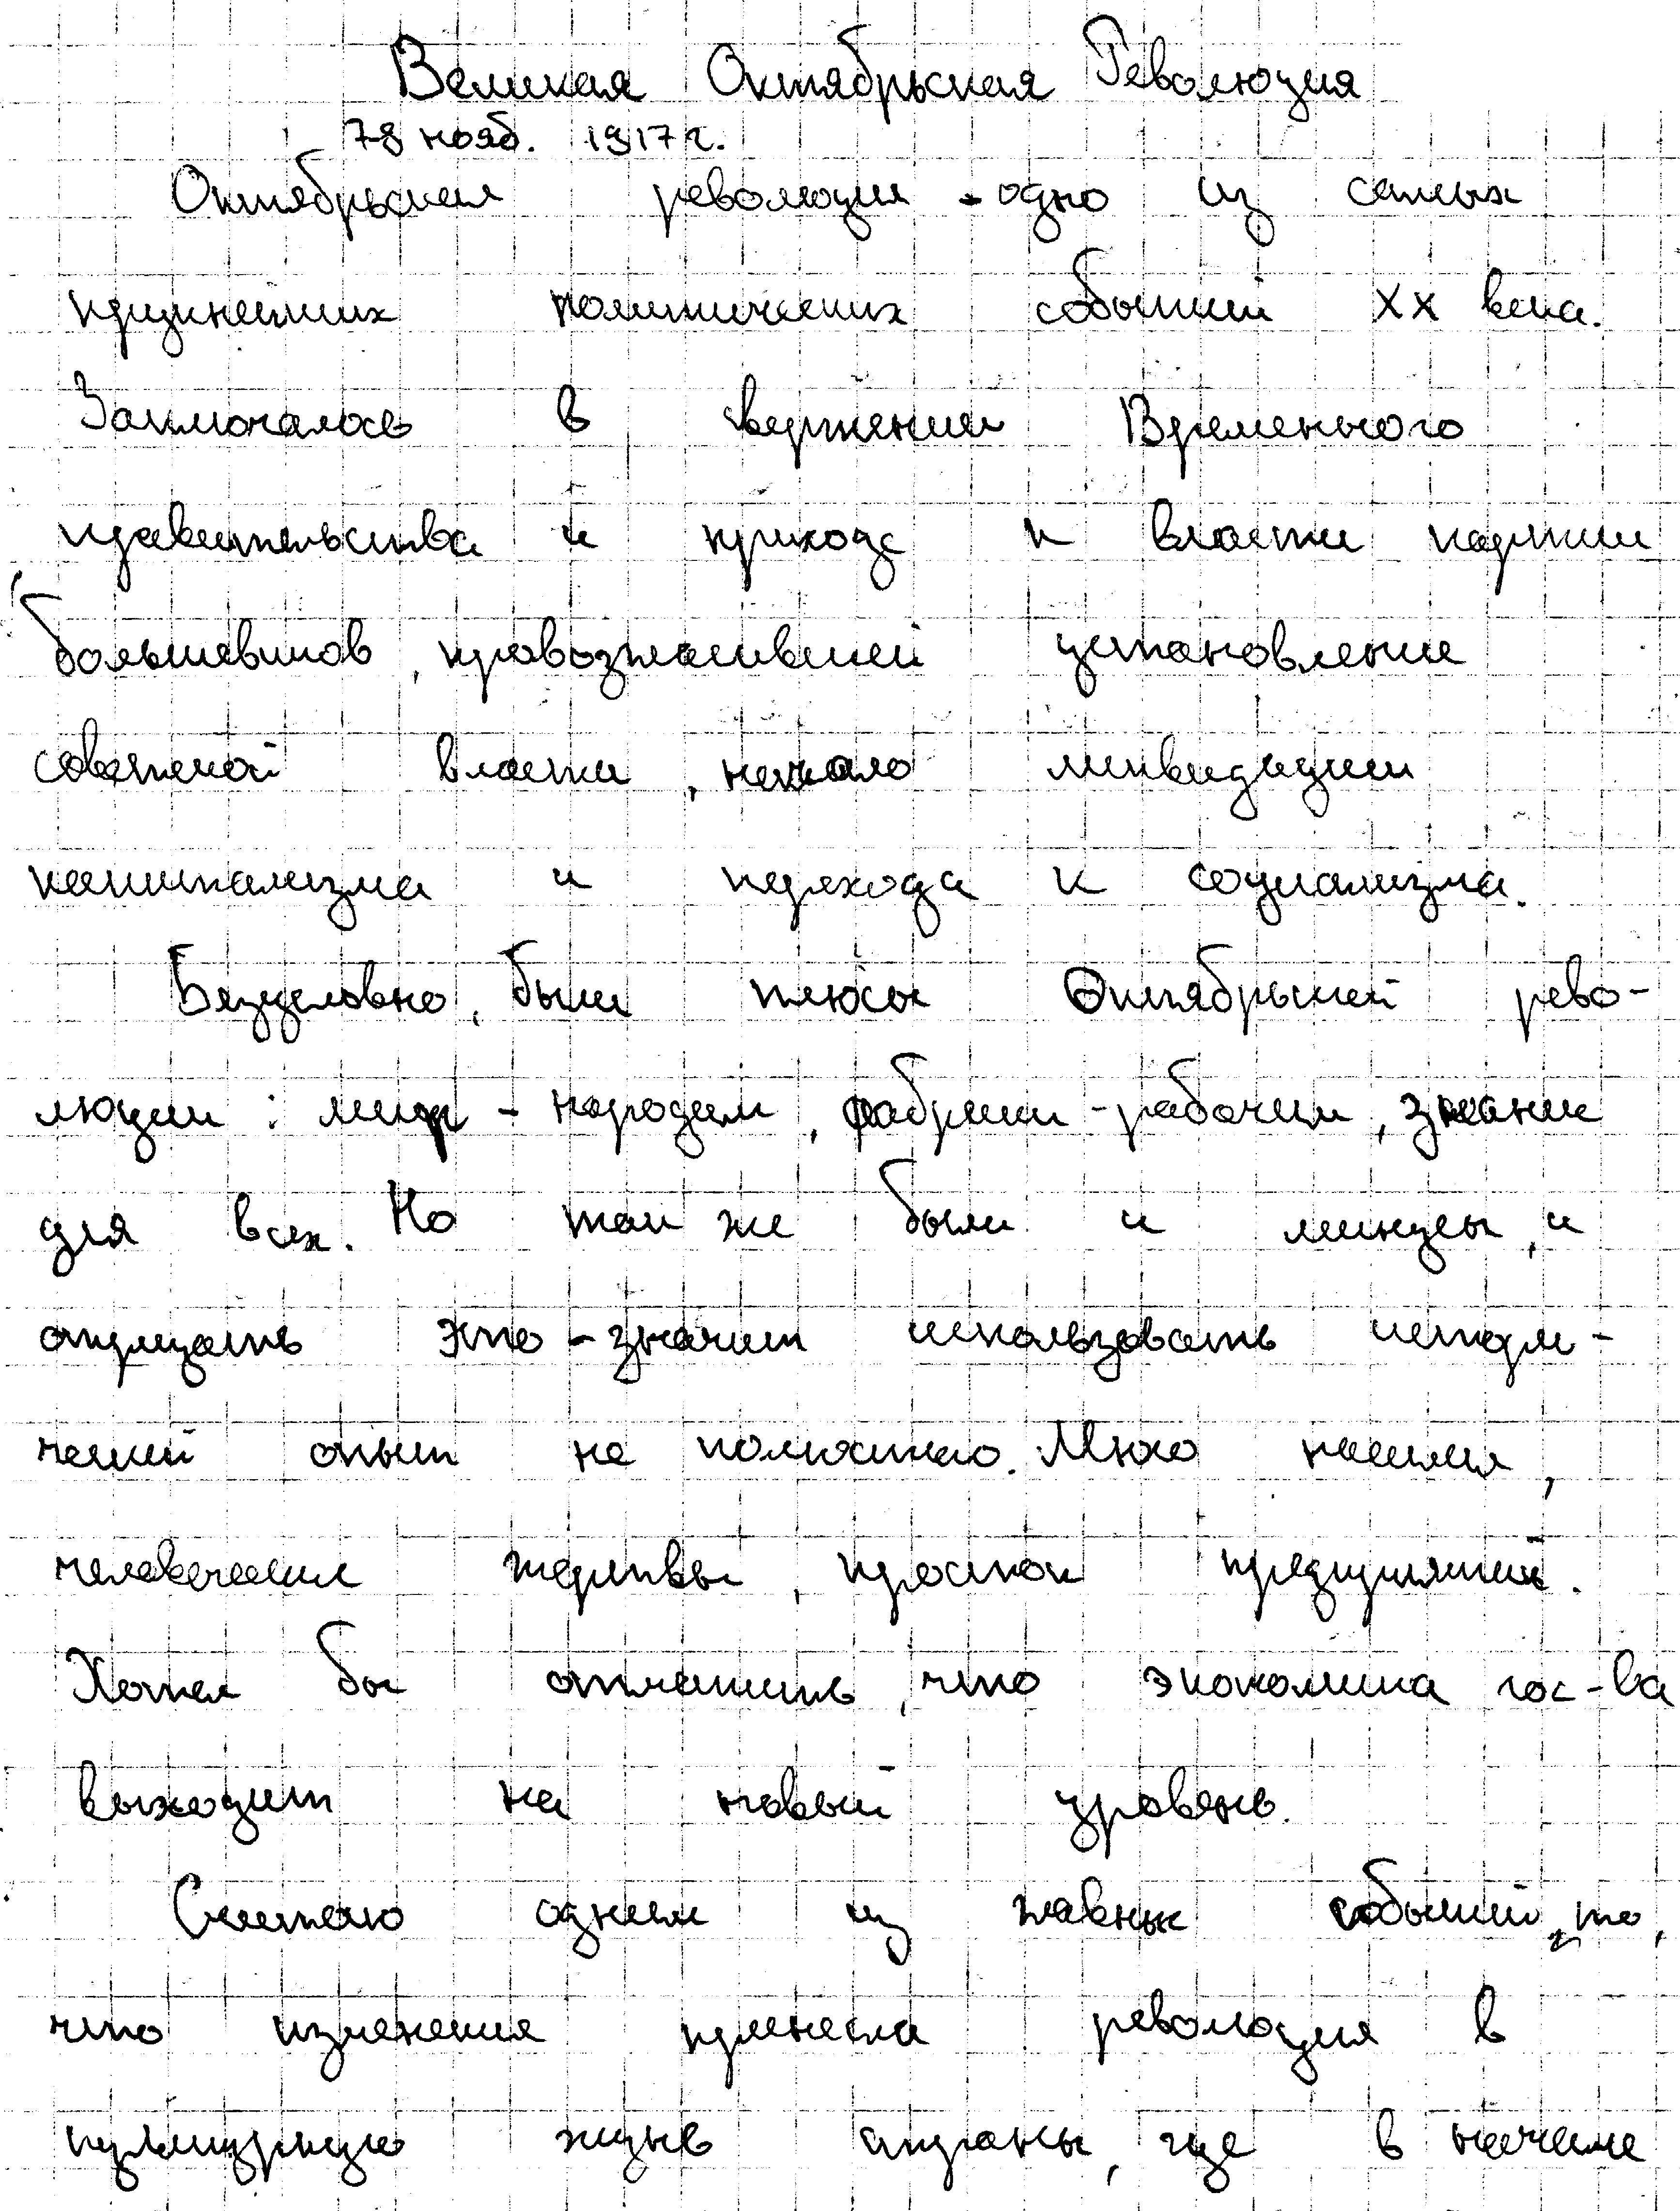 Великая Октябрьская Революция
7-8 нояб. 1917г.
Октябрьская революция - одно из самых
крупнейших политических событий XX века.
Заключалось в свержении Временного
правительства и прихода к власти партии
большевиков, провозгласившей установление
советской власти, начало ликвидации
капитализма и перехода к социализма.
Безусловно, были плюсы Октябрьской рево-
люции: мир - народам, фабрики - рабочим, знание
для всех. Но так же были и минусы, и
отрицать это - значит использовать истори-
ческий опыт не полностью. Много насилия,
человеческие жертвы, простой предприятий.
Хотел бы отметить, что экономика гос-ва
выходит на новый уровень.
Считаю одним из главных событий то,
что изменения принесла революция в
культурную жизнь страны, где в начале